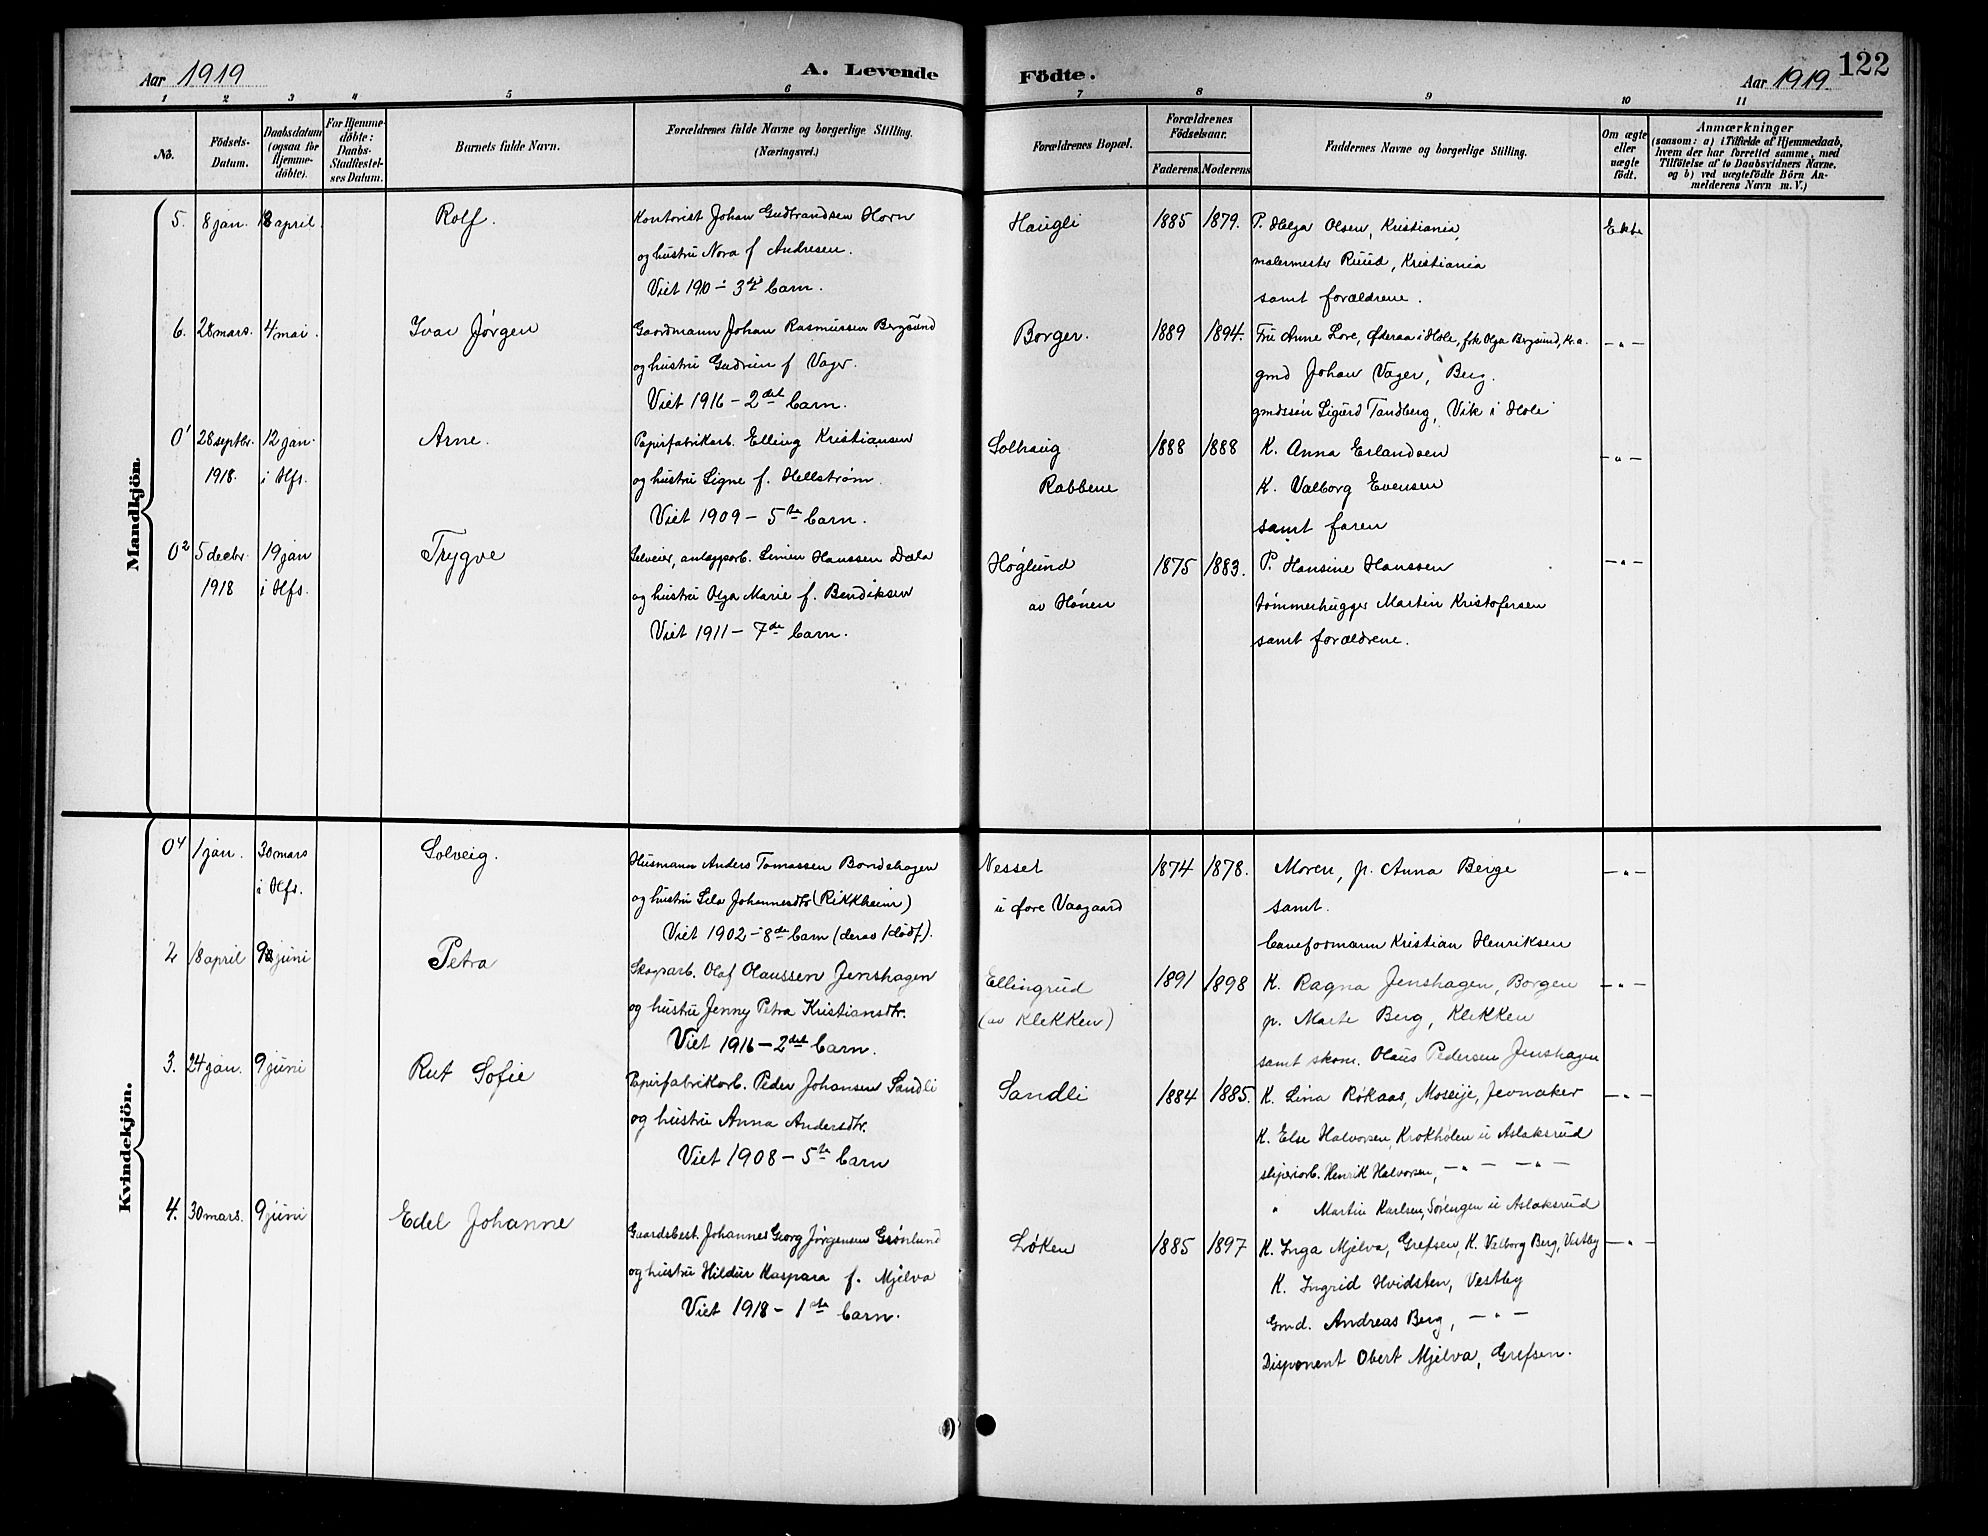 122
Aar 1919
A. Levende
Födte.
Aar 1919.
1 2 3 4 5 6 7 8 9 10 11
No.
Födsels-
Datum.
Daabsdatum
(ogsaa for
Hjemme-
döbte).
For Hjemme-
döbte:
Daabs-
Stadfæstel-
ses Datum.
Barnets fulde Navn.
Forældrenes fulde Navne og borgerlige Stilling.
(Næringsvei.)
Forældrenes Bopæl.
Forældrenes
Födselsaar.
Faderens.
Moderens
Faddernes Navne og borgerlige Stilling.
Om ægte
eller
uægte
födt.
Anmærkninger
(saasom: a) i Tilfælde af Hjemmedaab,
hvem der har forrettet samme, med
Tilföielse af to Daabsvidners Navne,
og b) ved uægtefödte Börn An-
melderens Navn m. V.)
Mandkjön.
5. 8 jan. 18 april. Rolf.
Kontorist Johan Gudbrandsen Horn
og hustru Nora f Andresen.
Viet 1910 - 3die barn.
Haugli 1885 1879.
P. Helga Olsen, Kristiania,
malermester Ruud, Kristiania
samt forældrene.
Ekte
6. 28 mars. 4 mai. Ivar Jørgen
Gaardmann Johan Rasmussen Bergsund
og hustru Gudrun f Vager.
Viet 1916 - 2det barn.
Borger. 1889 1894.
Fru Anne Lore, Øderaa i Hole, frk Olga Bergsund, Kr.a.
gmd Johan Vager, Berg.
gmdssøn Sigurd Tandberg, Vik i Hole
-"-
0¹ 28 septbr. 1918. 12 jan. i Hfs. Arne.
Papirfabrikarb. Elling Kristiansen
og hustru Signe f. Hellstrøm.
Viet 1909 - 5te barn.
Solhaug
Rabbene
1888 1888
K. Anna Erlandsen
K. Valborg Evensen
samt faren
-"-
0² 5 decbr. 1918 19 jan i Hfs. Trygve
Selveier, anlægsarb. Simen Hanssen Dæla
og hustru Olga Marie f. Bendiksen
Viet 1911 - 7de barn.
Høglund
av Hønen
1875 1883.
P. Hansine Hanssen
tømmerhugger Martin Kristofersen
samt forældrene.
-"-
Kvindekjön.
0⁴ 1 jan. 30 mars i Hfs. Solveig.
Husmann Anders Tomassen Bondehagen
og hustru Sela Johannesdtr (Rikkheim)
Viet 1902 - 8de barn (derav 1 dødf).
Nesset
u øvre Vaagaard
1874 1878.
Moren, p. Anna Berge
samt.
baneformann Kristian Henriksen
-"-
2 18 april 9 juni Petra
Skogsarb. Olaf Olaussen Jenshagen
og hustru Jenny Petra Kristiansdtr.
Viet 1916 - 2det barn.
Ellingrud
(av Klekken)
1891 1898
K. Ragna Jenshagen, Borgen
p. Marte Berg, Klekken
samt skom. Olaus Pedersen Jenshagen
-"-
3. 24 jan. 9 juni Rut Sofie
Papirfabrikarb. Peder Johansen Sandli
og hustru Anna Andersdtr.
Viet 1908 - 5te barn
Sandli 1884 1885.
K. Lina Røkaas, Moseije, Jevnaker
K. Else Halvorsen, Krokhølen u Aslaksrud
sliperiarb. Henrik Halvorsen, -"- -"-
" Martin Karlsen, Sørengen u Aslaksrud
-"-
4. 30 mars. 9 juni Edel Johanne
Gaardsbest. Johannes Georg Jørgensen Grønlund
og hustru Hildur Kaspara f. Mjelva
Viet 1918 - 1ste barn.
Løken 1885 1897
K. Inga Mjelva, Grefsen, K. Valborg Berg, Vestby
K. Ingrid Hvidsten, Vestby
Gmd. Andreas Berg, -"-
Disponent Obert Mjelva, Grefsen.
-"-